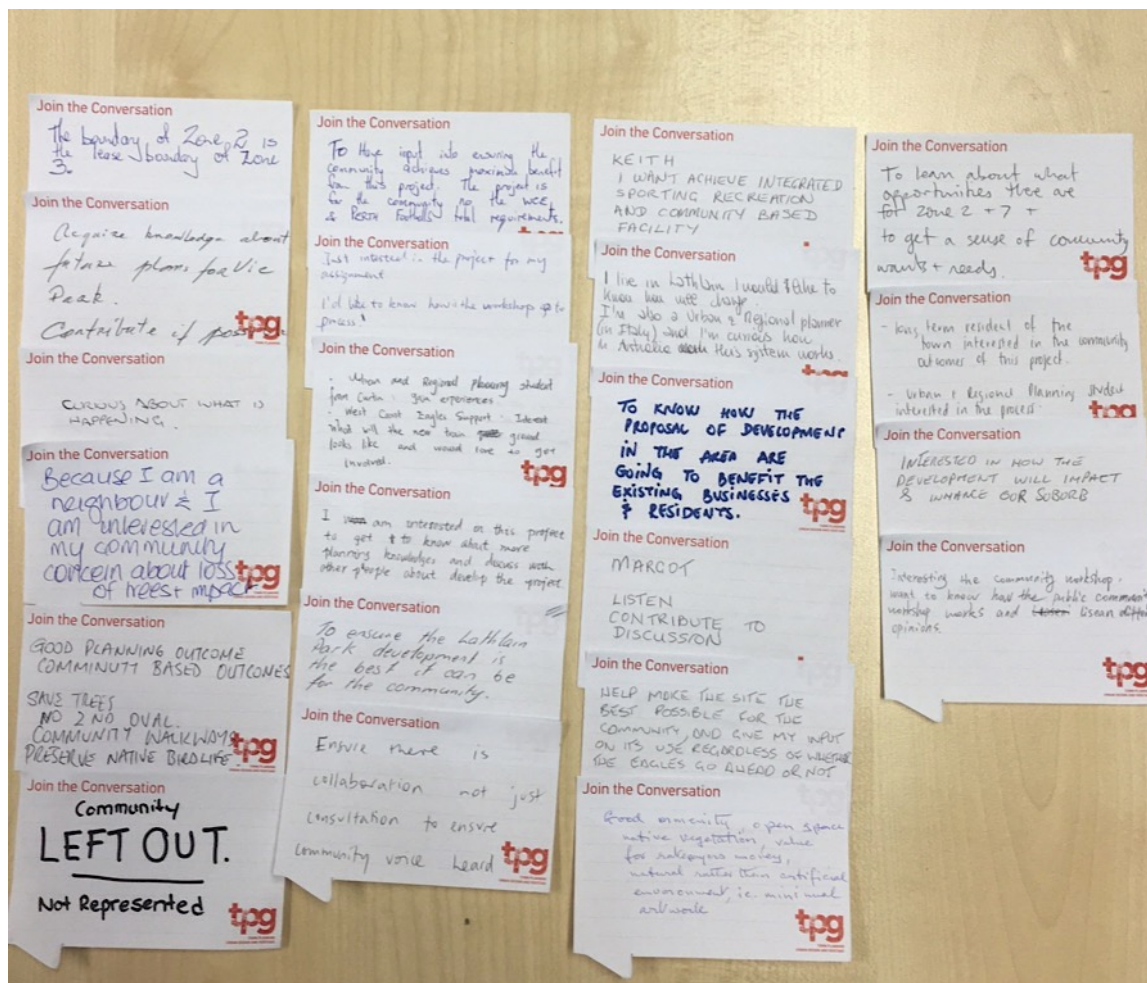 Join the Conversation
The boundary of Zone 2 is
the lease boundary of Zone
3.
Join the Conversation
Acquire knowledge about
future plans for Vic
Peak.
Contribute if
tpg
Join the Conversation
CURIOUS ABOUT WHAT IS
HAPPENING.
Join the Conversation
Because I am a
neighbour & I
am interested in
my community
concern about loss
of trees + impact
tpg
Join the Conversation
GOOD PLANNING OUTCOME
COMMINUTY BASED OUTCOMES
SAVE TREES
NO 2ND OVAL.
COMMUNITY WALKWAYS
PRESERVE NATIVE BIRDLIFE
tpg
Join the Conversation
Community
LEFT OUT.
Not Represented
tpg
Join the Conversation
To Have input into ensuring the
community achieves maximum benefit
from this project. The project is
for the community no the WCE
& Perth Footballs total requirements.
Join the Conversation
Just interest in the project for my
assignment
I'd like to know how the workshop to
process!
Join the Conversation
. Urban and Regional planning student
from Curtin . gain experiences
. West Coast Eagles Support . Interest
what will the new train ground
looks like and would love to get
involved.
tpg
Join the Conversation
I am interested on this project
to get to know about more
planning knowledges and discuss with
other people about develop the project
Join the Conversation
To ensure the Lathlain
Park development is
the best it can be
for the community.
Join the Conversation
Ensure there is
collaboration not just
consultation to ensure
community voice heard
tpg
Join the Conversation
KEITH
I WANT ACHIEVE INTEGRATED
SPORTING RECREATION
AND COMMUNITY BASED
FACILITY
Join the Conversation
I live in Lathlain I would like to
know how will change.
I'm also a Urban & Regional planner
(in Italy) and I'm curious how
in Australia this system works.
Join the Conversation
TO KNOW HOW THE
PROPOSAL OF DEVELOPMENT
IN THE AREA ARE
GOING TO BENEFIT THE
EXISTING BUSINESSES
& RESIDENTS.
tpg
Join the Conversation
MARGOT
LISTEN
CONTRIBUTE TO
DISCUSSION
Join the Conversation
HELP MAKE THE SITE THE
BEST POSSIBLE FOR THE
COMMUNITY, AND GIVE MY INPUT
ON ITS USE REGARDLESS OF WHETHER
THE EAGLES GO AHEAD OR NOT
Join the Conversation
Good amenity, open space
native vegetation, value
for ratepayers money,
natural rather than artificial
environment, i.e. minimal
artwork
tpg
Join the Conversation
To learn about what
opportunities there are
for Zone 2 + 7 +
to get a sense of community
wants + needs.
tpg
Join the Conversation
- long term resident of the
town interested in the community
outcomes of this project.
- Urban & Regional Planning student
interested in the process.
tpg
Join the Conversation
INTERESTED IN HOW THE
DEVELOPMENT WILL IMPACT
& WHANCE OUR SUBURB
Join the Conversation
Interesting the community workshop.
want to know how the public
workshop works and
opinions.
tpg